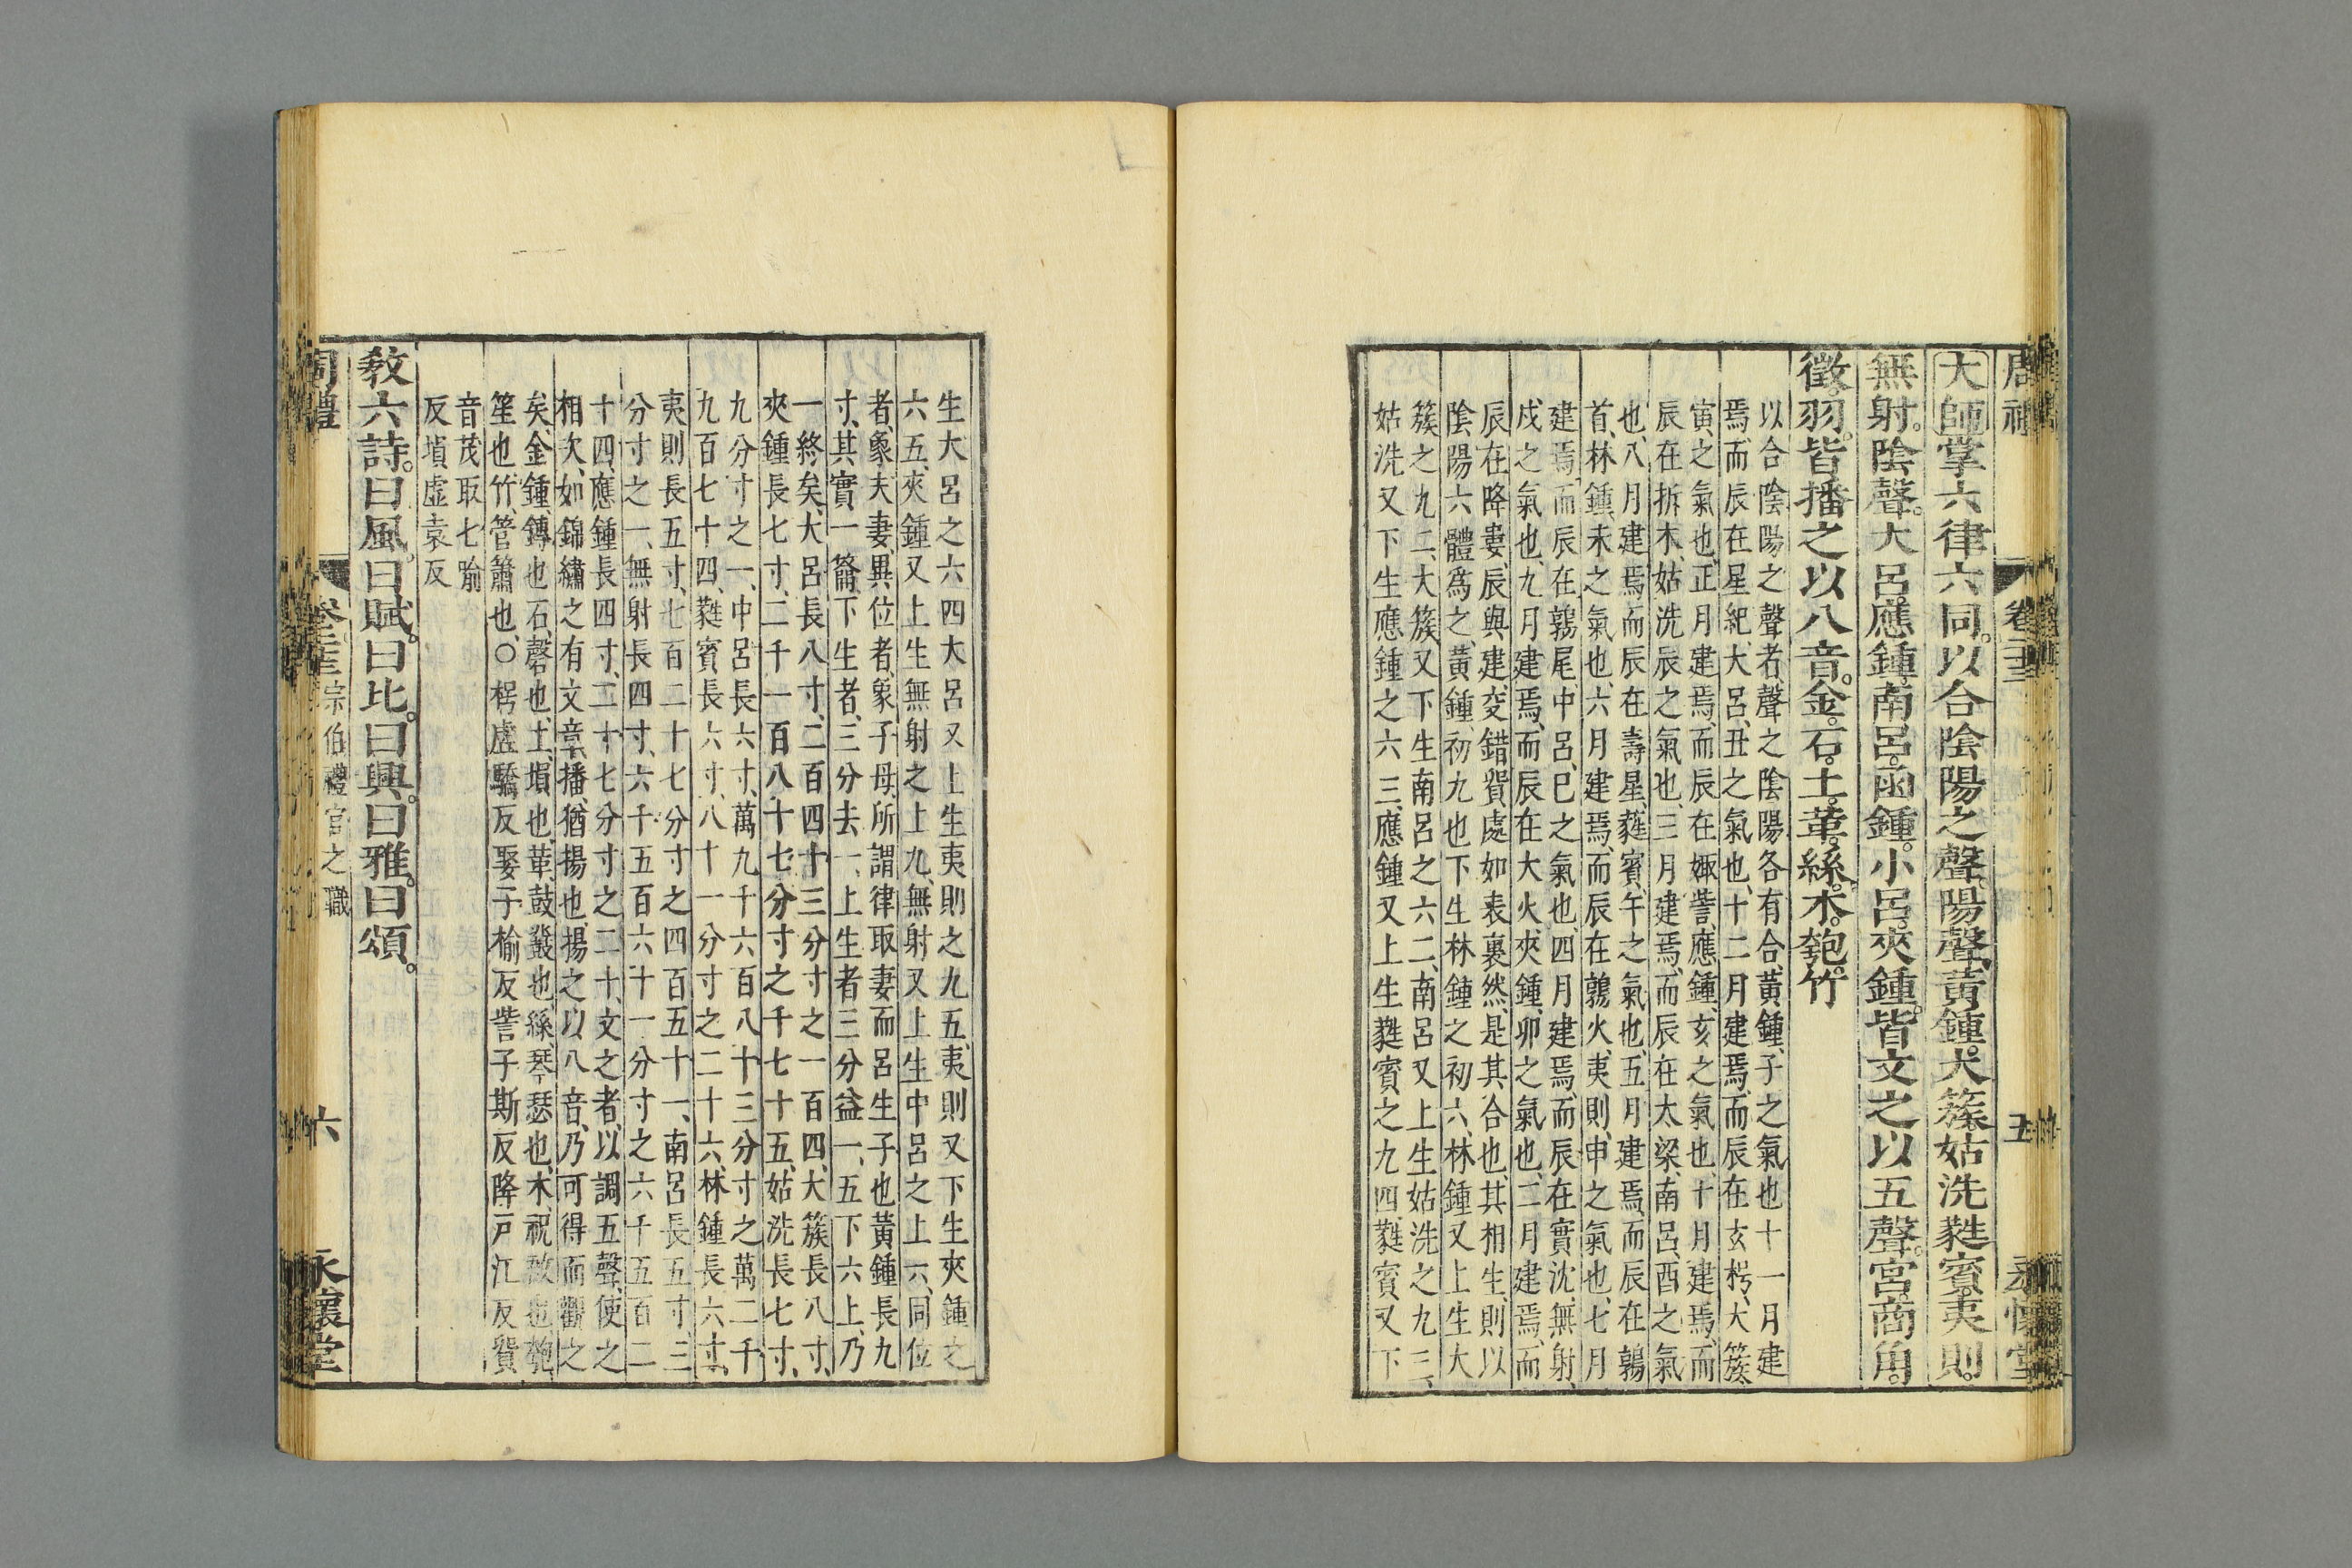 大師掌六律六同。以合陰陽之聲。陽聲、黃鍾。大簇、姑洗、蕤賓。夷則。
無射。陰聲。大呂。應鍾。南呂。函鍾。小呂。夾鍾。皆文之以五聲。宮、商、角。
徵。羽。皆播之以八音。金。石。土。革。絲。木。匏。竹
以合陰陽之聲者、聲之陰陽各有合、黃鍾、子之氣也十一月建
焉、而辰在星紀、大呂、丑之氣也、十二月建焉、而辰在玄枵、大簇、
寅之氣也、正月建焉、而辰在娵訾、應鍾、亥之氣也、十月建焉、而
辰在析木、姑洗辰之氣也、三月建焉、而辰在大梁、南呂、酉之氣
也、八月建焉而辰在壽星、蕤賓、午之氣也、五月建焉、而辰在鶉
首、林鍾、未之氣也、六月建焉、而辰在鶉火、夷則、申之氣也、七月
建焉、而辰在鶉尾、中呂、巳之氣也、四月建焉、而辰在實沈、無射、
戍之氣也、九月建焉、而辰在大火、夾鍾、卯之氣也、二月建焉、而
辰在降婁、辰與建交錯貿處如表裏然、是其合也、其相生、則以
陰陽六體爲之、黃鍾、初九也下生林鍾之初六、林鍾又上生大
簇之九二、大簇又下生南呂之六二、南呂又上生姑洗之九三、
姑洗又下生應鍾之六三、應鍾又上生蕤賓之九四蕤賓又下
生大呂之六四大呂又上生夷則之九五、夷則又下生夾鍾之
六五、夾鍾又上生無射之上九、無射又上生中呂之上六、同位
者、象夫妻、異位者、象子母、所謂律取妻而呂生子也黃鍾長九
寸、其實一籥、下生者、三分去一、上生者三分益一、五下六上、乃
一終矣、大呂長八寸、二百四十三分寸之一百四、大簇長八寸、
夾鍾長七寸、二千一百八十七分寸之千七十五、姑洗長七寸、
九分寸之一、中呂長六寸、萬九千六百八十三分寸之萬二千
九百七十四、蕤賓長六寸、八十一分寸之二十六、林鍾長六寸、
夷則長五寸、七百二十七分寸之四百五十一、南呂長五寸、三
分寸之一、無射長四寸、六千五百六十一分寸之六千五百二
十四、應鍾長四寸、二十七分寸之二十、文之者、以調五聲、使之
相次、如錦繡之有文章、播、猶揚也、揚之以八音、乃可得而觀之
矣、金、鍾、鎛也、石、磬也、土、塤也、革、鼓鼗也、絲、琴瑟也、木、柷敔也、匏
笙也、竹、管簫也、○枵虛驕反娶子榆反訾子斯反降戶江反貿
音茂取七喻
反塤虛袁反
教六詩。曰風。曰賦。曰比。曰興。曰雅。曰頌。
周禮 宗伯禮官之職 六 永懷堂